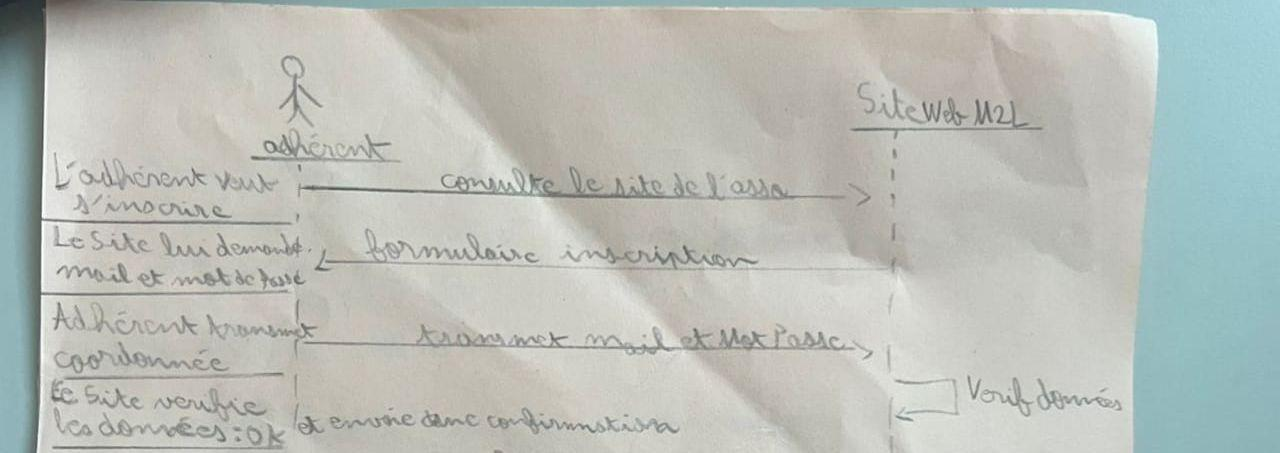 Site Web M2L
adhérent
L'adhérent veut
s'inscrire
consulte le site de l'asso
Le Site lui demande
mail et mot de passe
formulaire inscription
Adhérent transmet
coordonnée
transmet mail et Mot Passe
Le Site verifie
les données : OK
et envoie donc confirmation
Verif données